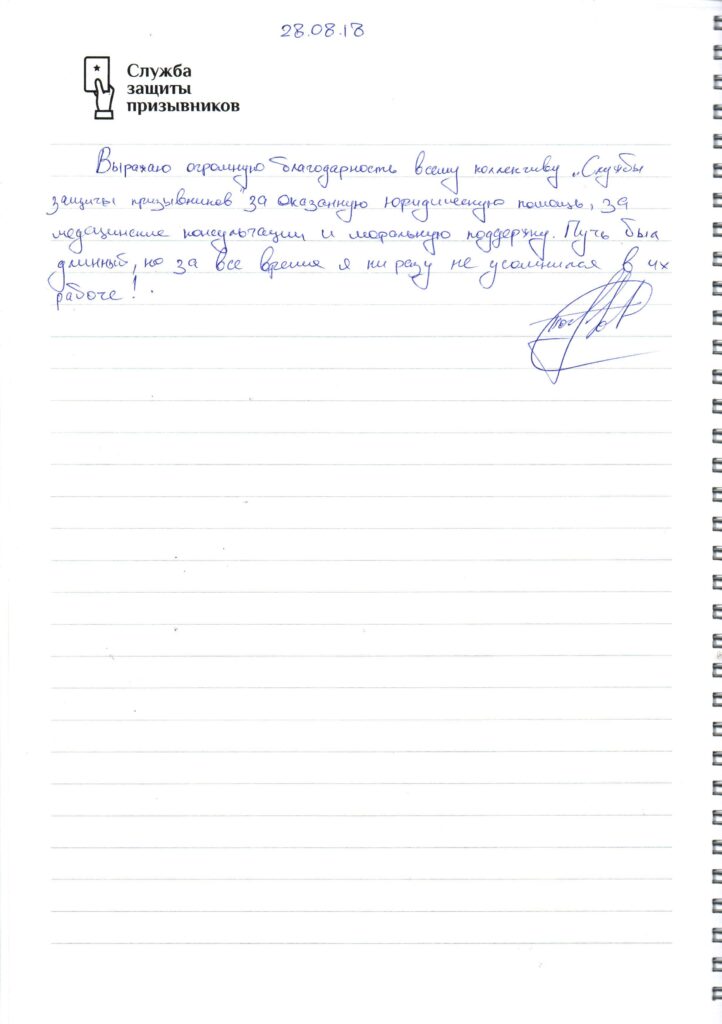 28.08.18
Служба
защиты
призывников
Выражаю огромную благодарность всему коллективу „Службы
защиты призывников" за оказанную юридическую помощь, за
медацинские консультации и моральную поддержку. Путь был
длинный, но за все время я ни разу не усомнился в их
работе!